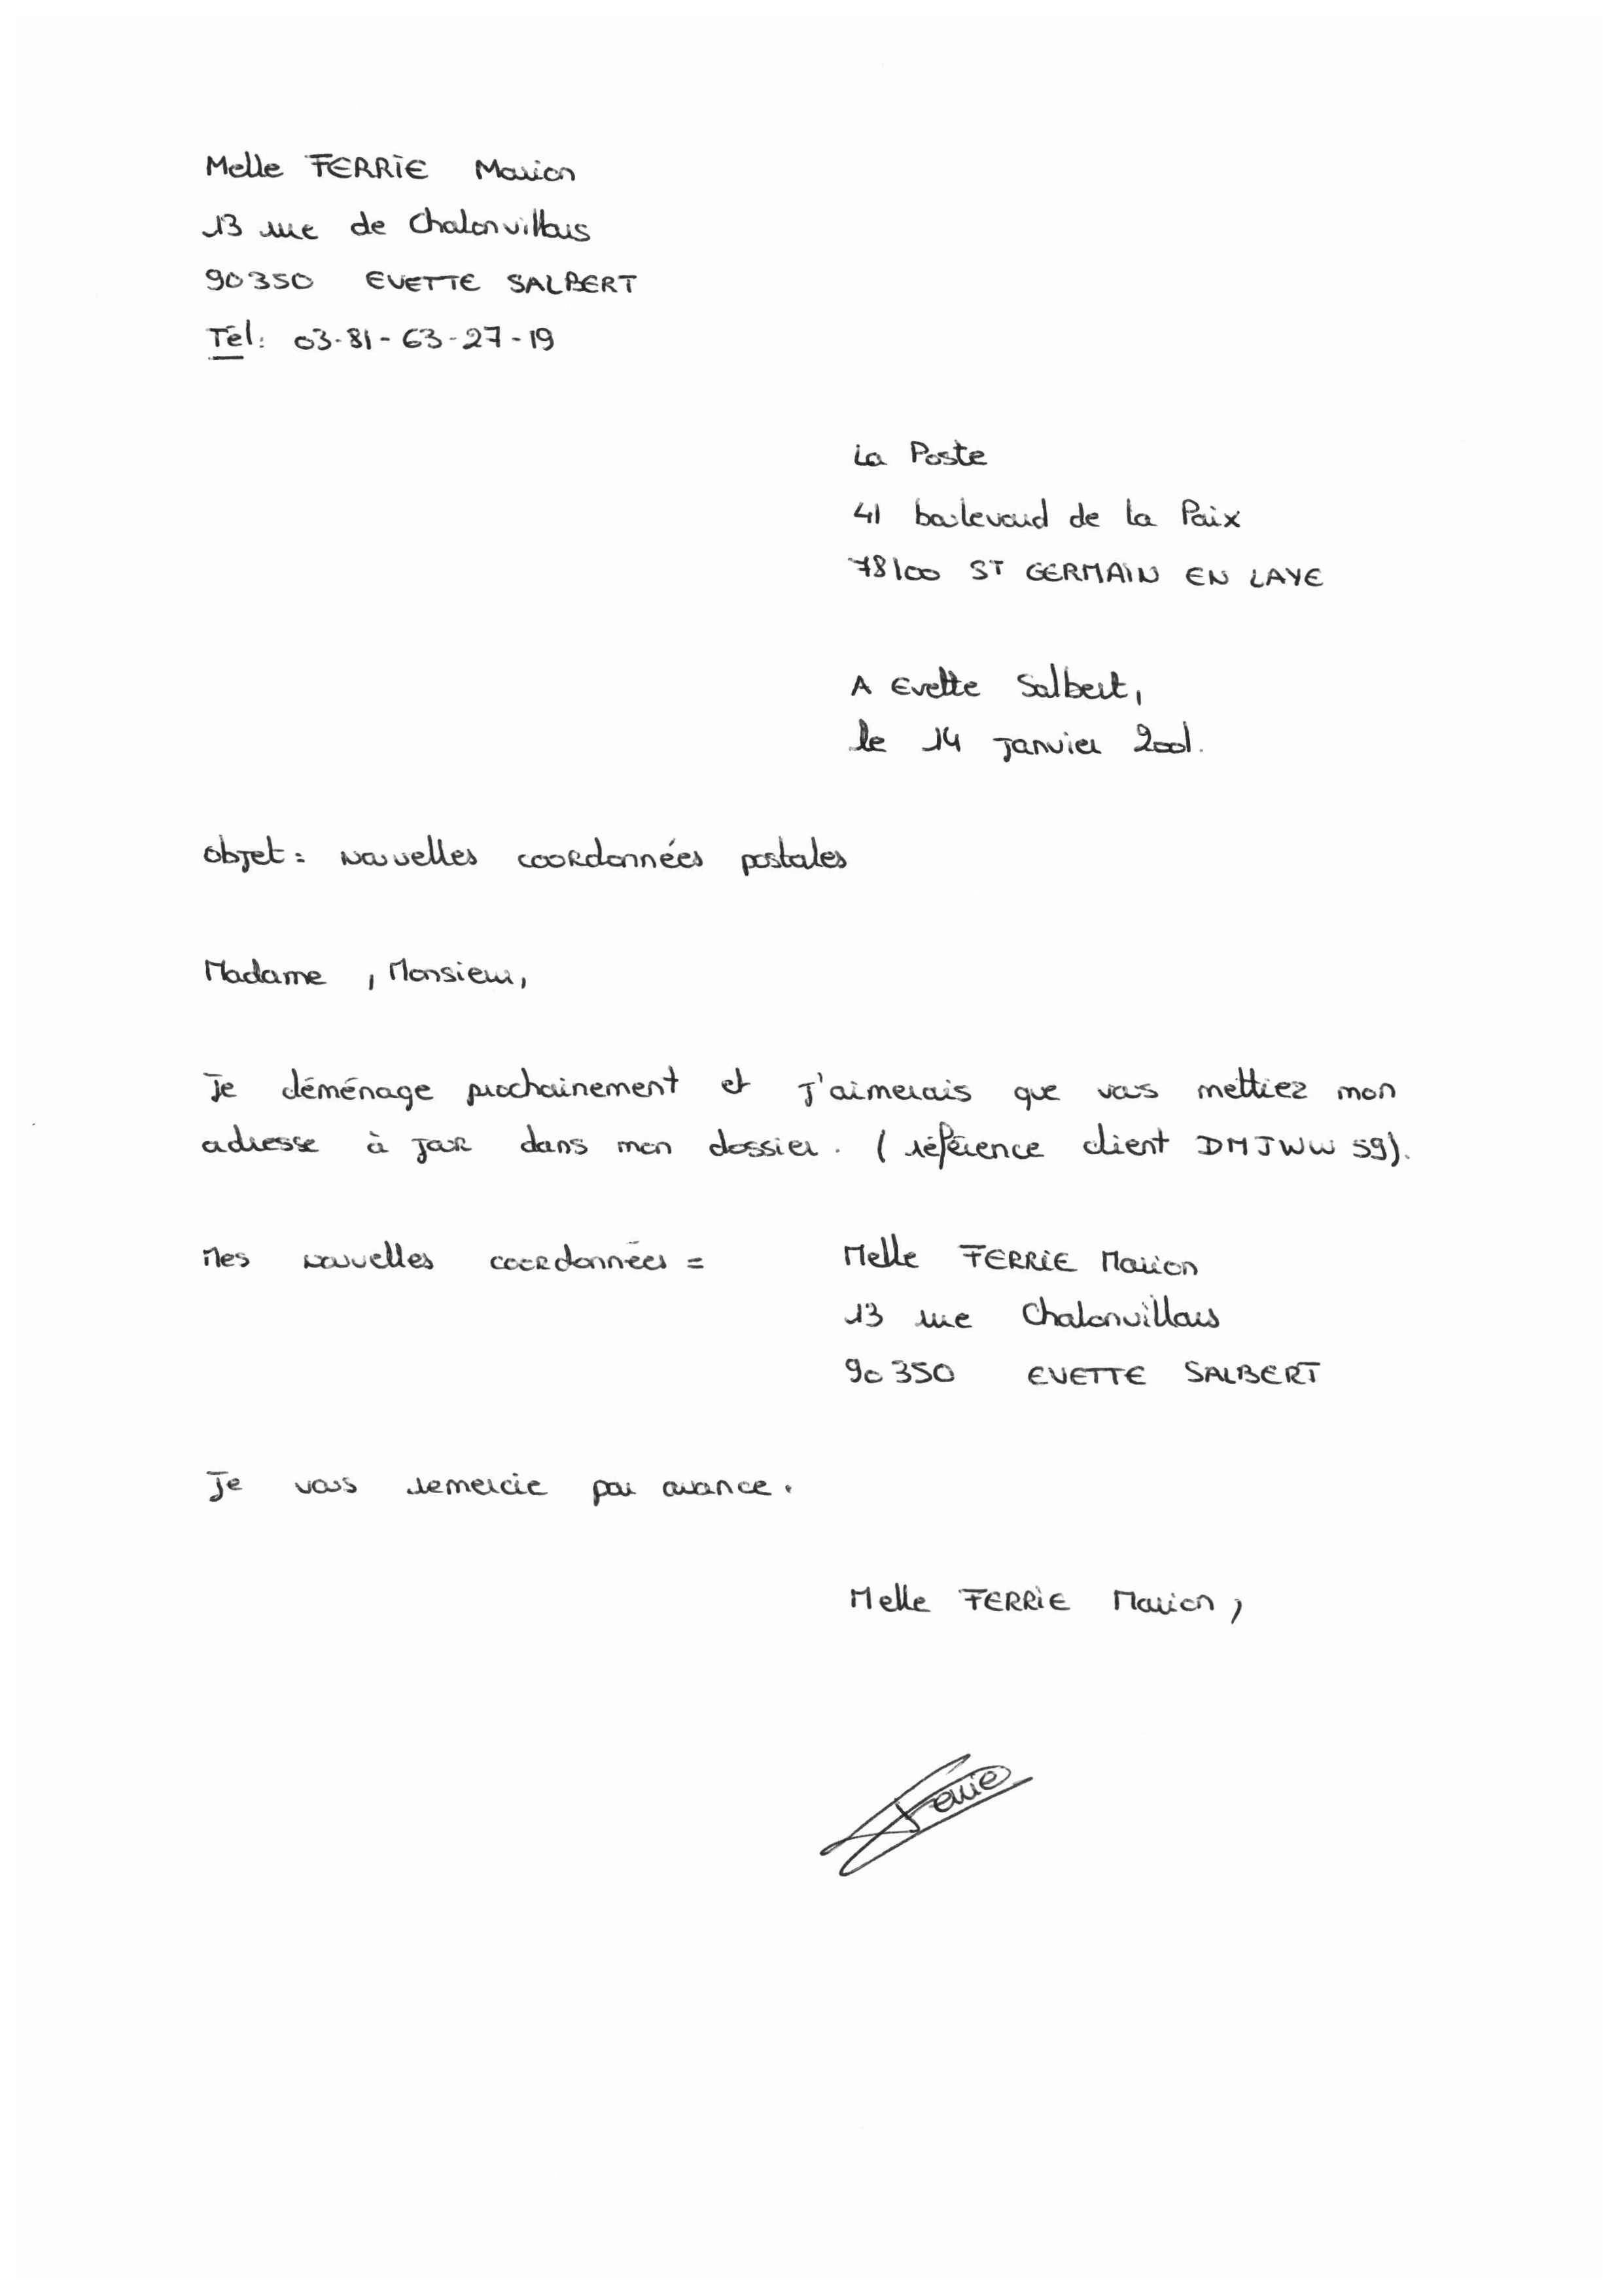 Melle FERRIE Marion
13 rue de Chalonvillars
90350 EVETTE SALBERT
Tél: 03-81-63-27-19
La Poste
41 boulevard de la Paix
78100 ST GERMAIN EN LAYE
A Evette Salbert,
le 14 janvier 2001.
Objet : nouvelles coordonnées postales
Madame , Monsieur,
Je déménage prochainement et j'aimerais que vous mettiez mon
adresse à jour dans mon dossier. (référence client DMJWW 59).
Mes nouvelles coordonnées = Melle FERRIE Marion
13 rue Chalonvillars
90 350 EVETTE SALBERT
Je vous remercie par avance.
Melle FERRIE Marion,
Ferrie